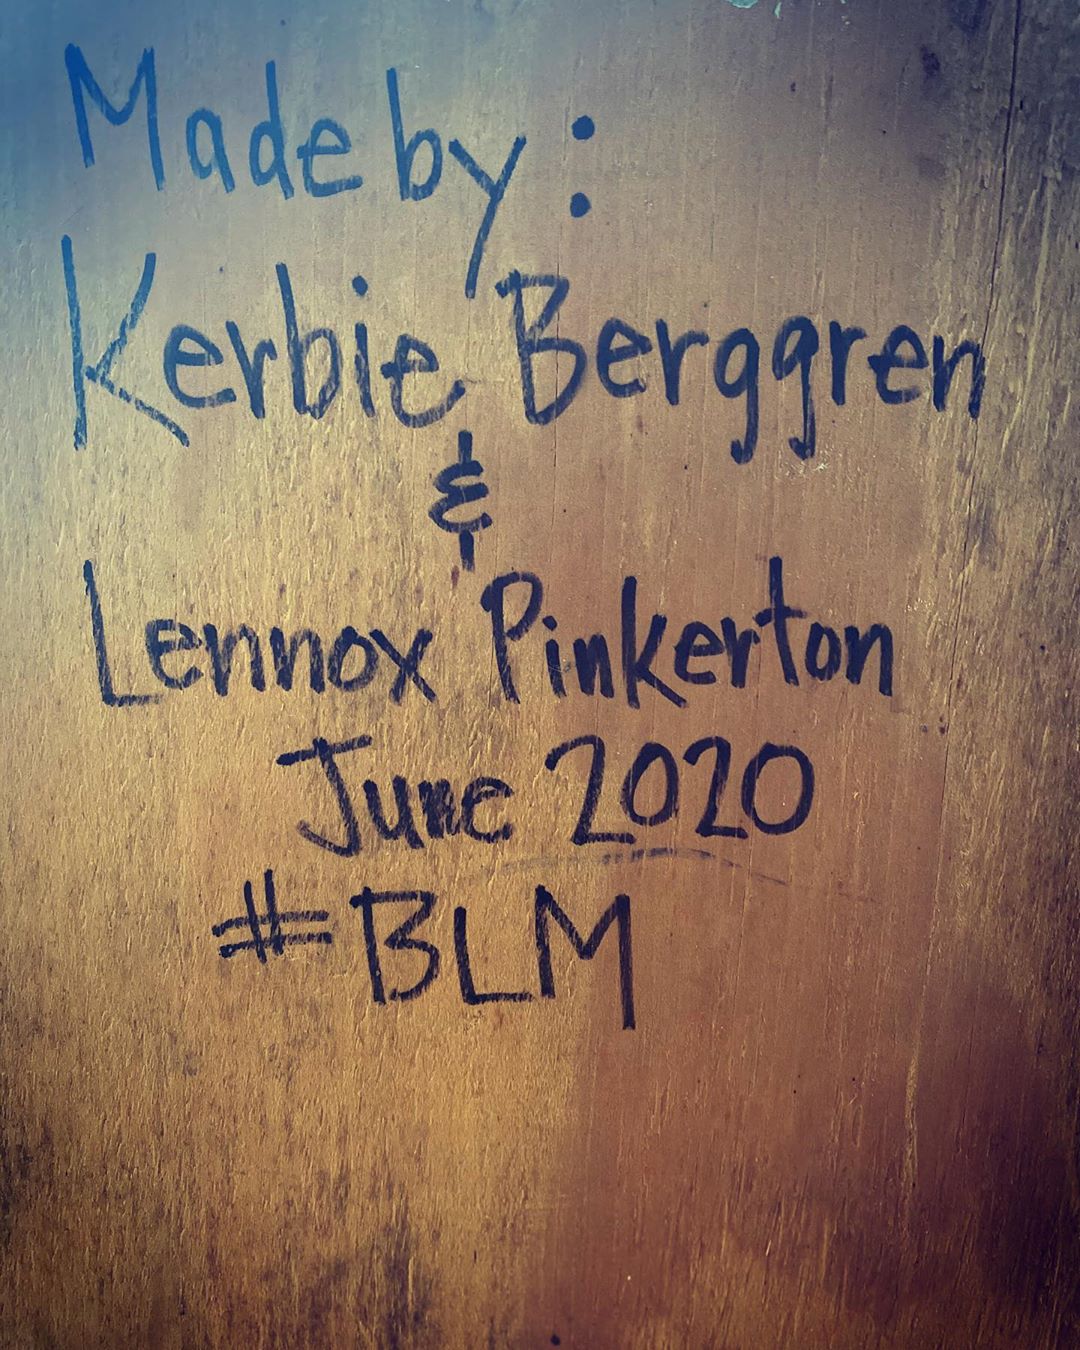 Made by:
Kerbie Berggren
&
Lennox Pinkerton
June 2020
#BLM